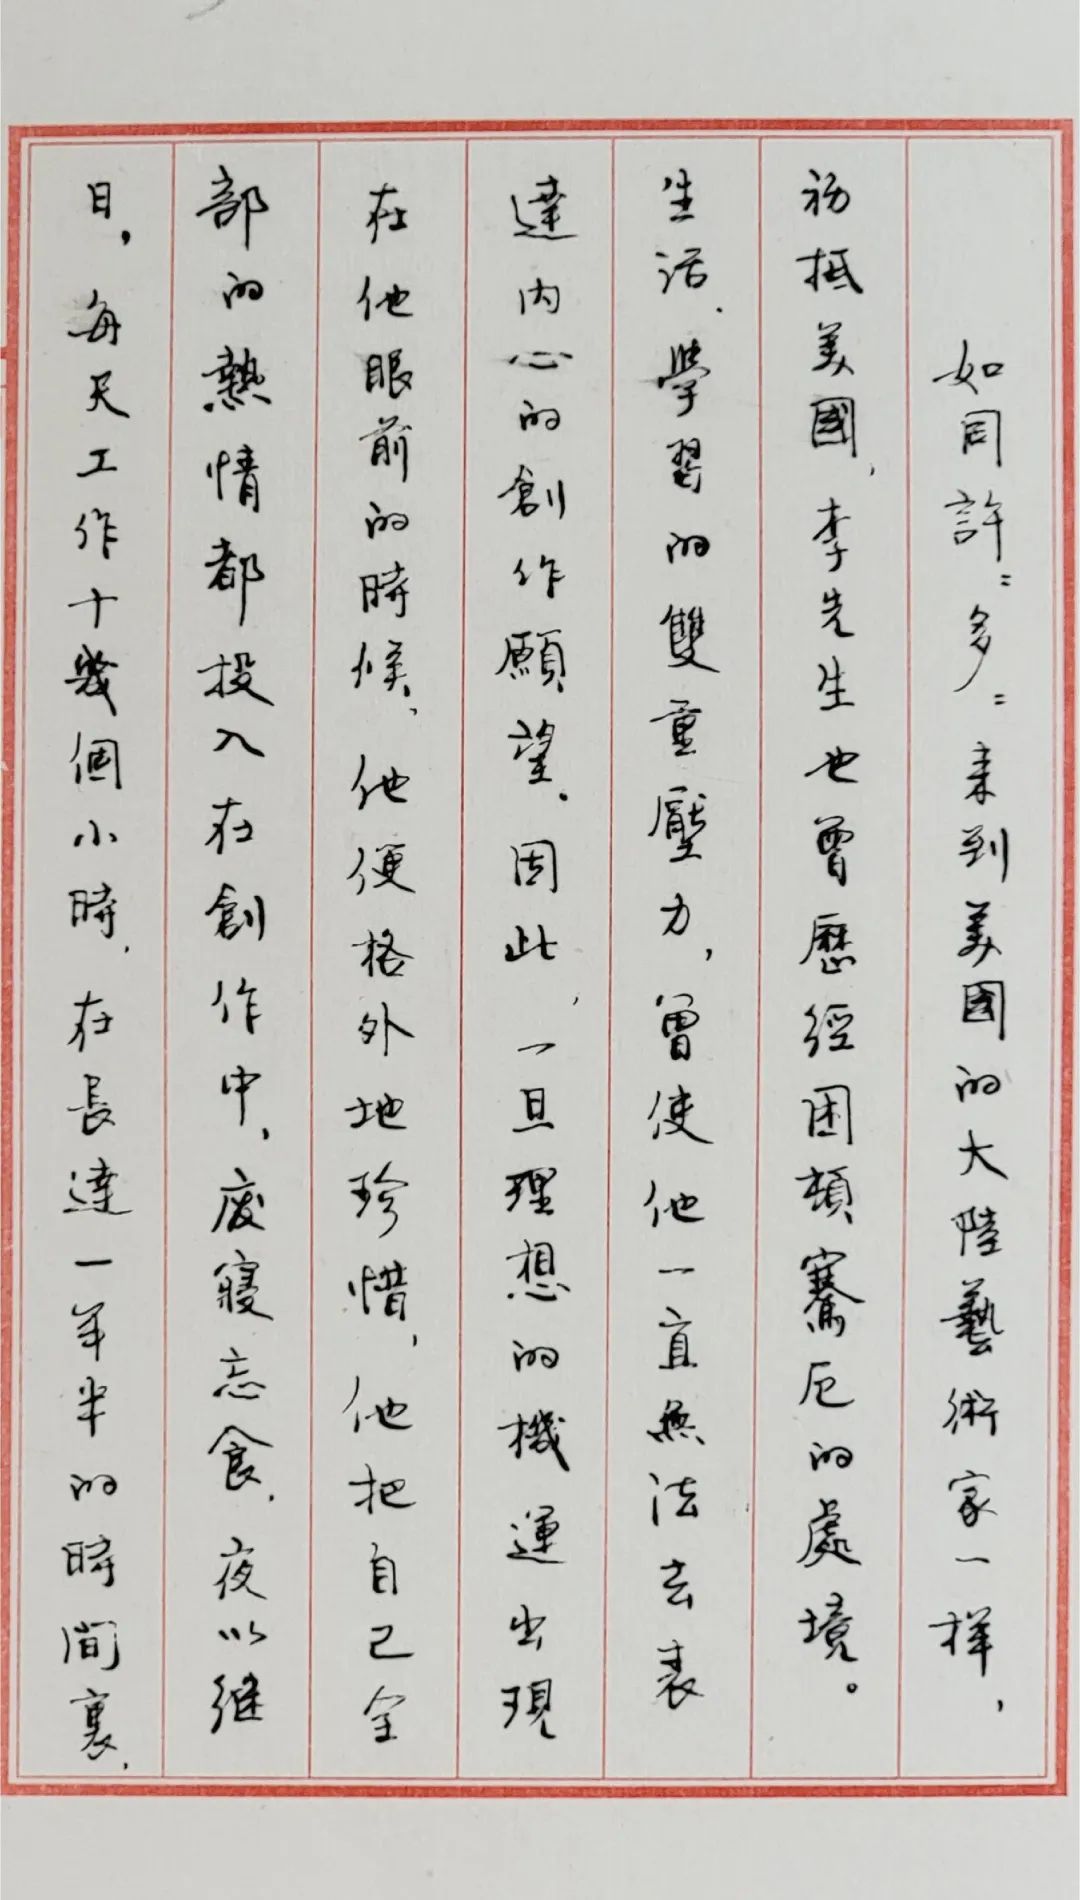 如同許=多=來到美國的大陸藝術家一樣，
初抵美國，李先生也曾歷經困頓騫厄的處境。
生活、學習的雙重壓力，曾使他一直無法去表
達內心的創作願望。因此，一旦理想的機運出現
在他眼前的時候，他便格外地珍惜，他把自己全
部的熱情都投入在創作中，廢寢忘食，夜以继
日，每天工作十幾個小時，在長達一年半的時間裏，